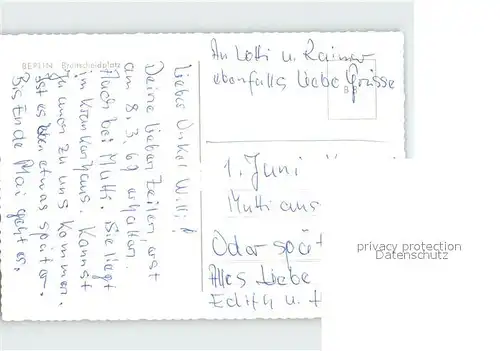 BERLIN Breitscheidplatz
Lieber Onkel Willi!
Deine lieben Zeilen, erst
am 8. 3. 69 erhalten.
Auch bei Mutti. Sie liegt
im Krankenhaus. Kannst
zu uns kommen.
Ist es etwas später.
Bis Ende Mai geht es.
An Lotti u. Rainer
ebenfalls liebe Grüsse
1. Juni
Mutti aus
Oder spät
Alles Liebe
Edith u.
privacy protection
Datenschutz